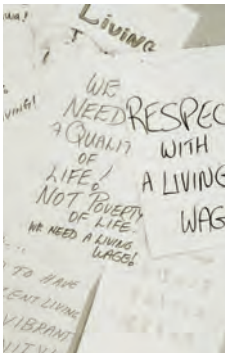 Living
I
VING!
WE
NEED
A QUALITY
OF
LIFE!
NOT POVERTY
OF LIFE..
WE NEED A LIVING
WAGE!
RESPEC
WITH
A LIVING
WAG
TO HAVE
CENT LIVING
VIBRANT